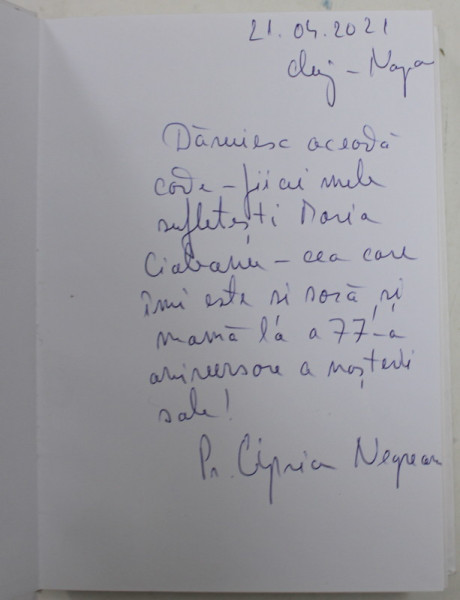 21.04.2021
Cluj-Napoca
Dăruiesc această
carte - fiicei mele
sufletești Maria
Ciobanu - cea care
îmi este și soră și
mamă la a 77-a
aniversare a nașterii
sale!
Pr. Ciprian Negrean